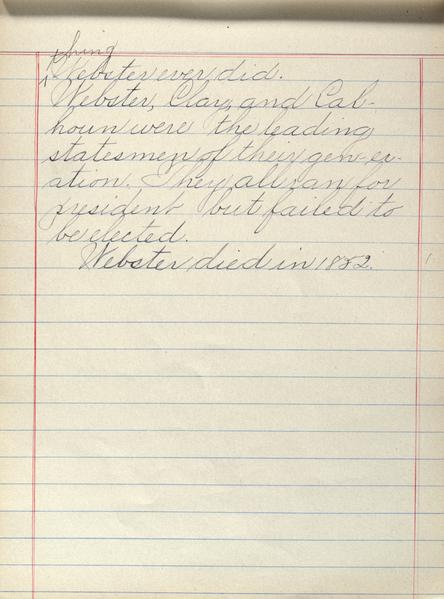 thing
Webster ever did.
Webster, Clay, and Cal-
houn were the leading
statesmen of their gen-er-
ation. They all ran for
president but failed to
be elected.
Webster died in 1852.